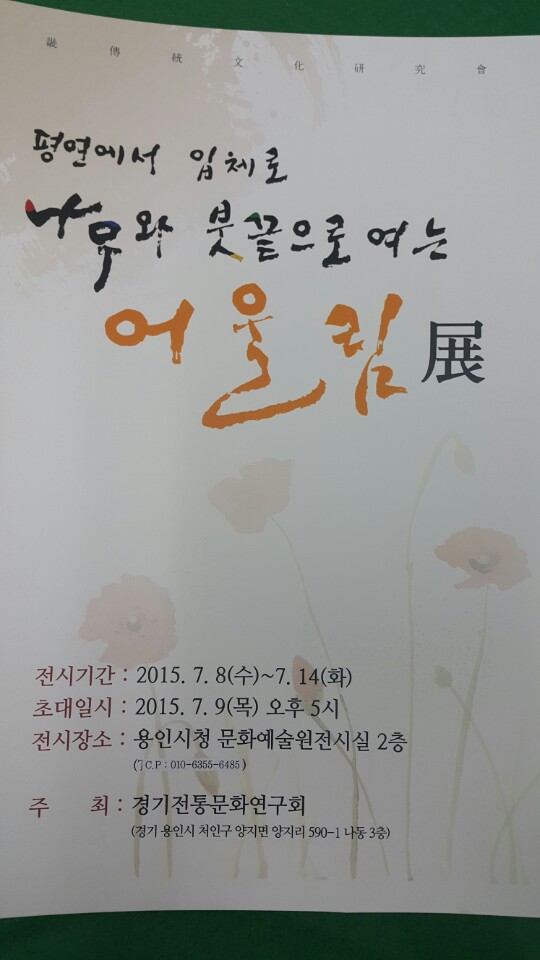 畿傳統文化硏究會
평면에서 입체로
나무와 붓끝으로 여는
어울림展
전시기간 : 2015. 7. 8(수)~7. 14(화)
초대일시 : 2015. 7. 9(목) 오후 5시
전시장소 : 용인시청 문화예술원전시실 2층
C.P : 010-6355-6485 )
주 최 : 경기전통문화연구회
(경기 용인시 처인구 양지면 양지리 590-1 나동 3층)